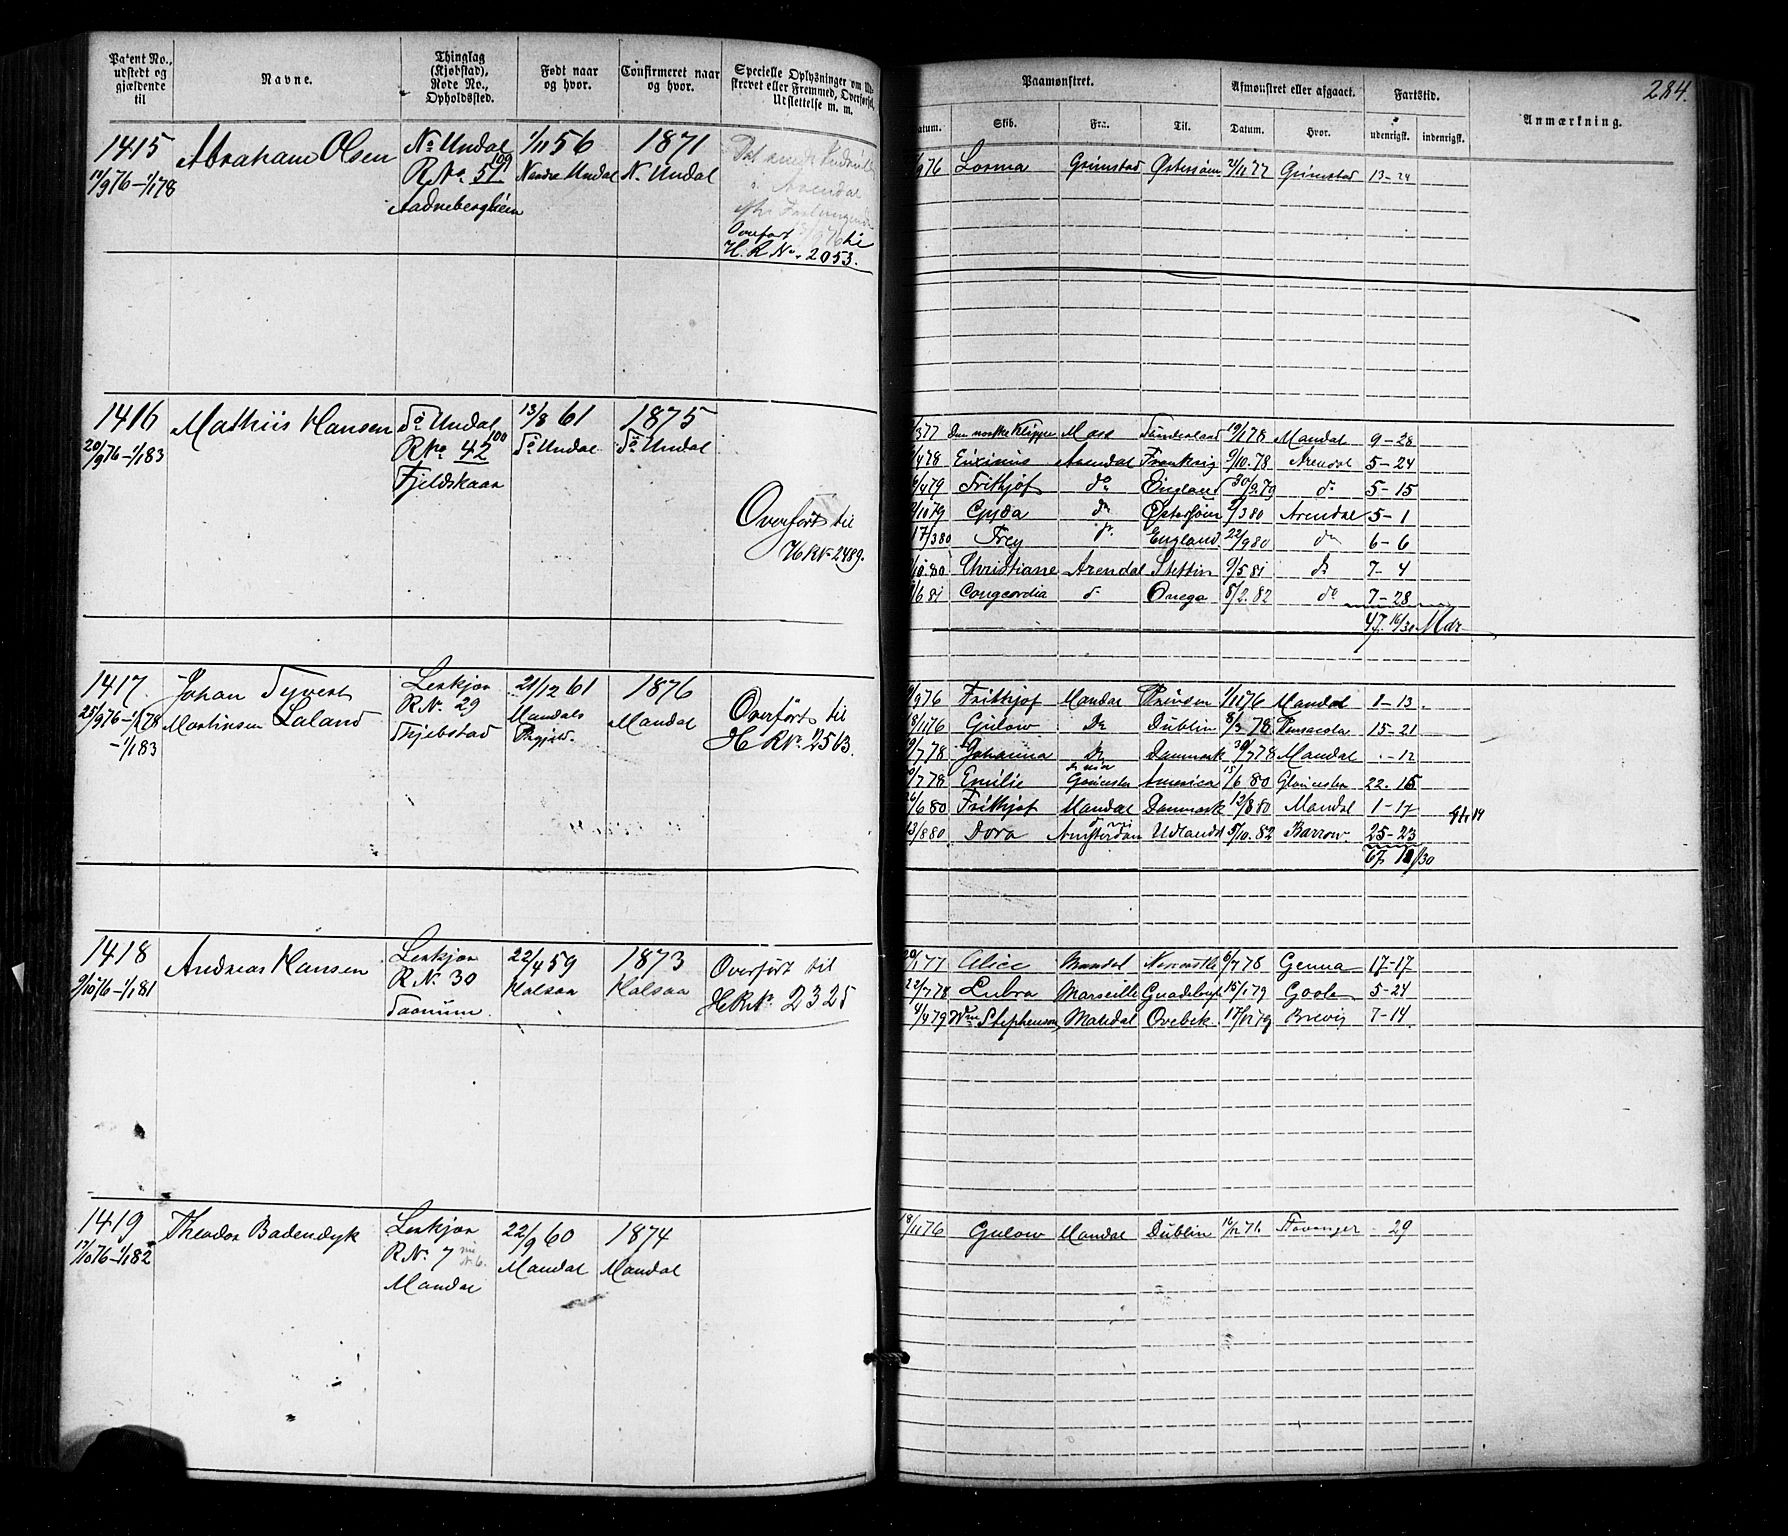 284.
Patent No., udstedt og gjældende til
Navne.
Thinglag (Kjøbstad), Rode No., Opholdssted.
Født naar og hvor.
Confirmeret naar og hvor.
Specielle Oplysninger om
strevet eller Fremmed, Overførsel, Udslettelse m. m.
Paamønstret.
Afmønstret eller afgaaet.
Fartstid.
Anmærkning.
Datum. Skib. Fra. Til. Datum. Hvor. udenrigsk. indenrigsk.
1415 Abraham Olsen No Undal 1/11 56 1871
11/9 76–1/1 78 R No 51 109 Nordre Undal N. Undal
Overført til
H. R No. 2053.
/9 76 Lorma Grimstad Østersøen 21/11 77 Grimstad 13-24
1416 Mathiis Hansen Sø Undal 13/8 61 1875
20/9 76–1/1 83 R No 42 100 Sø Undal Sø Undal
Fjeldskaar
Overført til
H R No 2489.
/3 77 Den norske Klippe Moss Sunderland 19/1 78 Mandal 9-28
/4 78 Euxinus Arendal Frankrig 9/10. 78 Arendal 5-24
/4 79 Frithjof do England 30/9. 79 do 5-15
/10 79 Gyda do Østersøen /3 80 Arendal 5-1
17/3 80 Frey do England 22/9 80 do 6-6
/10. 80 Christiane Arendal Stettin 9/5 81 do 7-4
/6 81 Congcordia do Onega 8/2. 82 do 7-28
47. 16/30 Mdr
1417. Johan Syvert Leskjær 21/12 61 1876
25/9 76–1/1 78 Martinsen Laland R No. 29 Mandals Mandal
–1/1 83 Kjebstad
Overført til
H R No. 2563.
/9 76 Frithjof Mandal 1/11 76 Mandal 1-13.
18/11 76 Gulow Do Dublin 8/3 78 Pensacola 15-21
/7 78 Johanna Do Danmark /7 78 Mandal .-12
/7 78 Emilie America 15/6 80 Gloucester 22. 15
/6 80 Frithjof Mandal Danmark 12/8 80 Mandal 1-17
/8 80 Dora Amsterdam Udlandet 5/10. 82 Barrow. 25-23
67.
1418 Andreas Hansen Leskjær 22/4 59 1873
9/10 76–1/1 81 R No. 30 Halsaa Halsaa
Overført til
H R No. 2325
20/1 77 Alice Mandal Newcastle 6/7 78 Genua 17-17
22/7 78 Lubra Marseille Guadeloupe 15/1 79 Goole 5-24
4/4 79 Wm Stephenson Mandal Qvebek 17/12 79 Brevig 7-14
1419 Theodor Badendyk Leskjær 22/9 60 1874
12/10 76–1/1 82 R No. 7 Mandal Mandal
Mandal
18/11 76 Gulow Mandal Dublin 16/12 76 Stavanger .-29